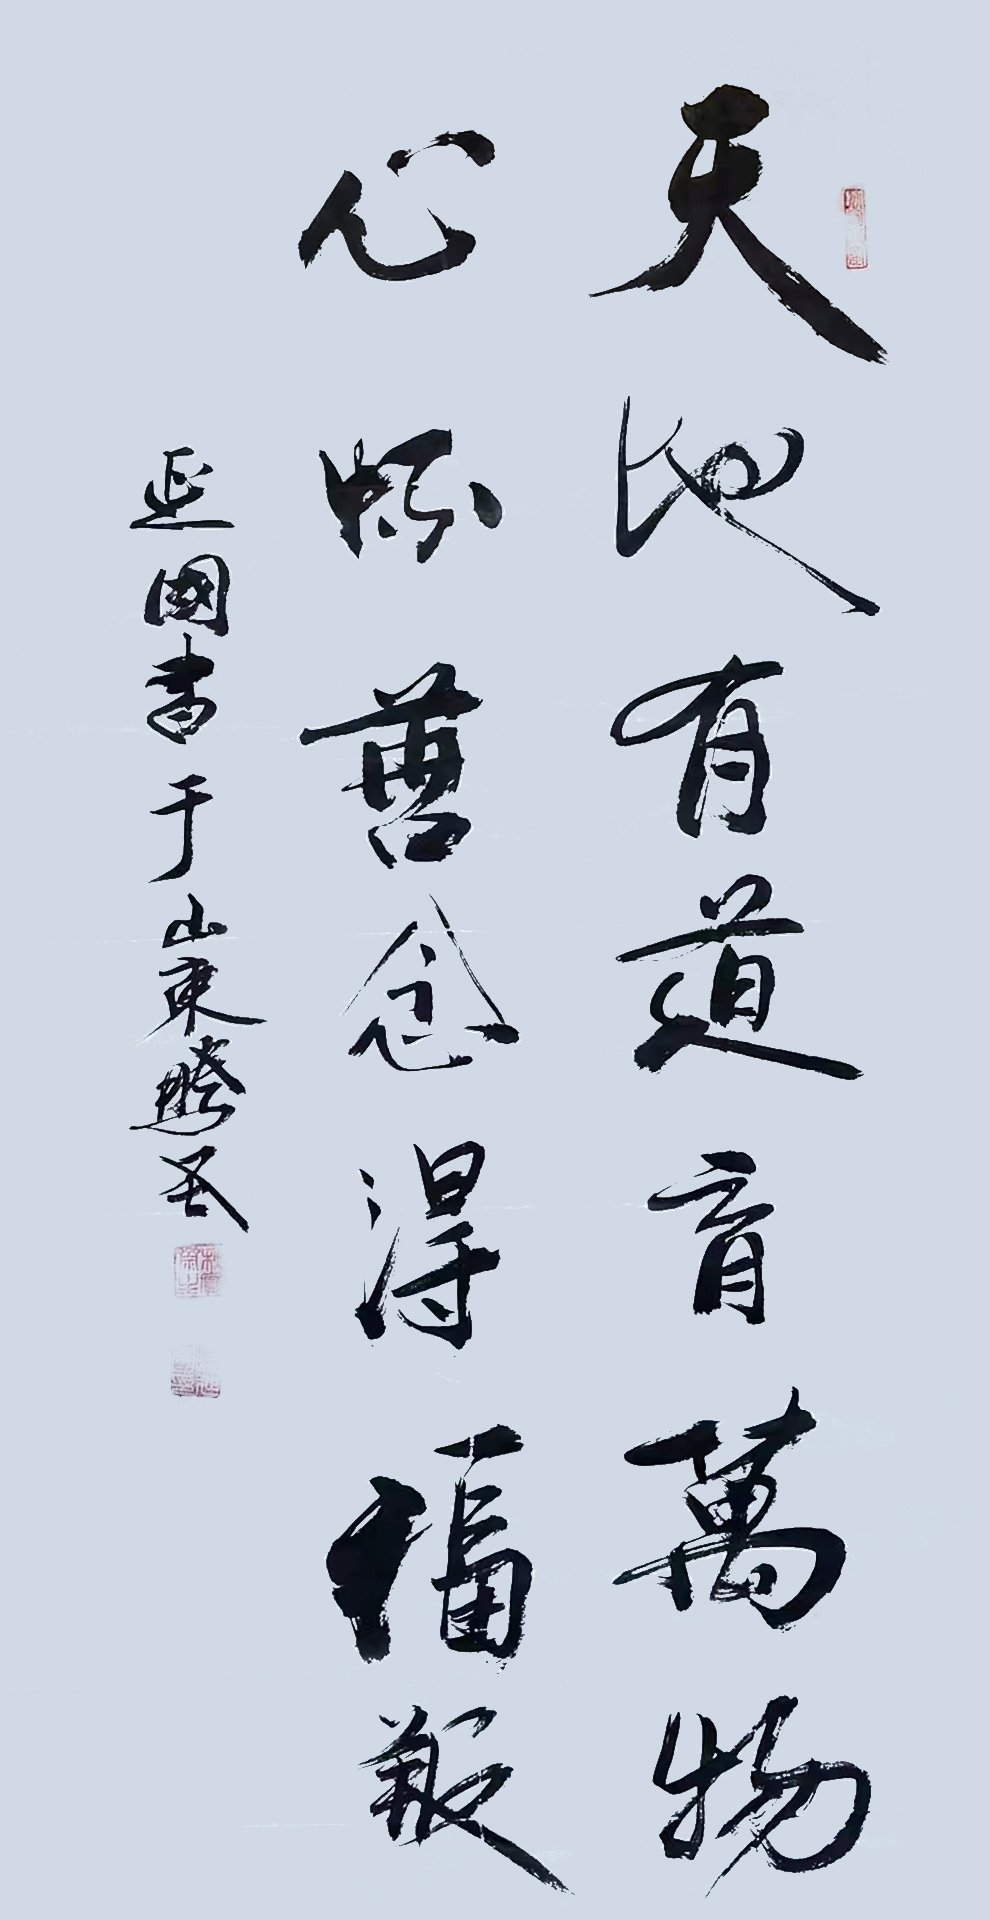 天地有道育萬物
心懷善念得福報
延國書于山東騰